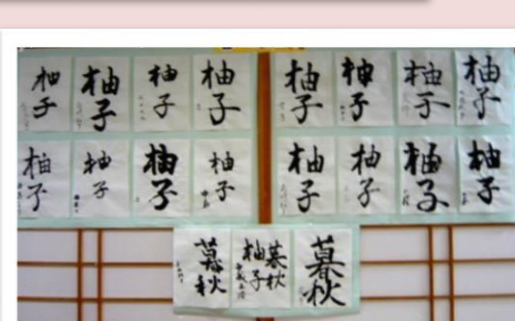 柚子
柚子
柚子
柚子
柚子
柚子
柚子
柚子
柚子
柚子
柚子
柚子
柚子
柚子
柚子
柚子
暮秋
暮秋
柚子
暮秋